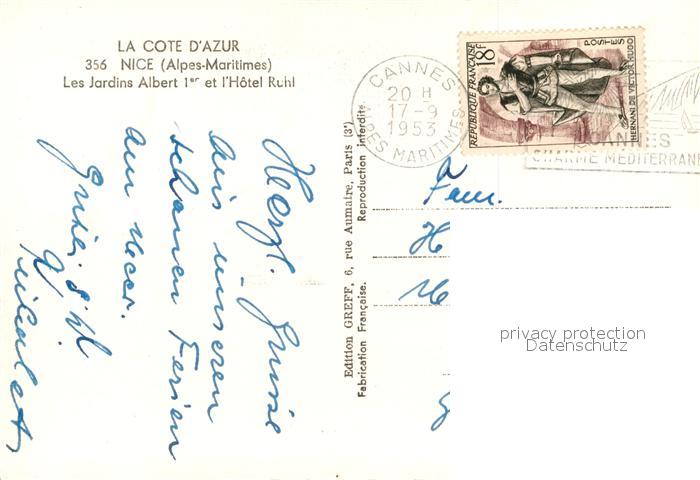 LA COTE D'AZUR
356 NICE (Alpes-Maritimes)
Les Jardins Albert 1er et l'Hôtel Ruhl
CANNES
20 H
17-9
1953
ALPES MARITIMES
POSTES
18F
REPUBLIQUE FRANÇAISE
HERNANI DE VICTOR HUGO
CANNES
CHARME MEDITERRANE
Herzl. Grüsse
aus unseren
schönen Ferien
am Meer.
Edition GREFF, 6, rue Aumaire, Paris (3e)
Fabrication Française. Reproduction interdite
Fam.
H
privacy protection
Datenschutz